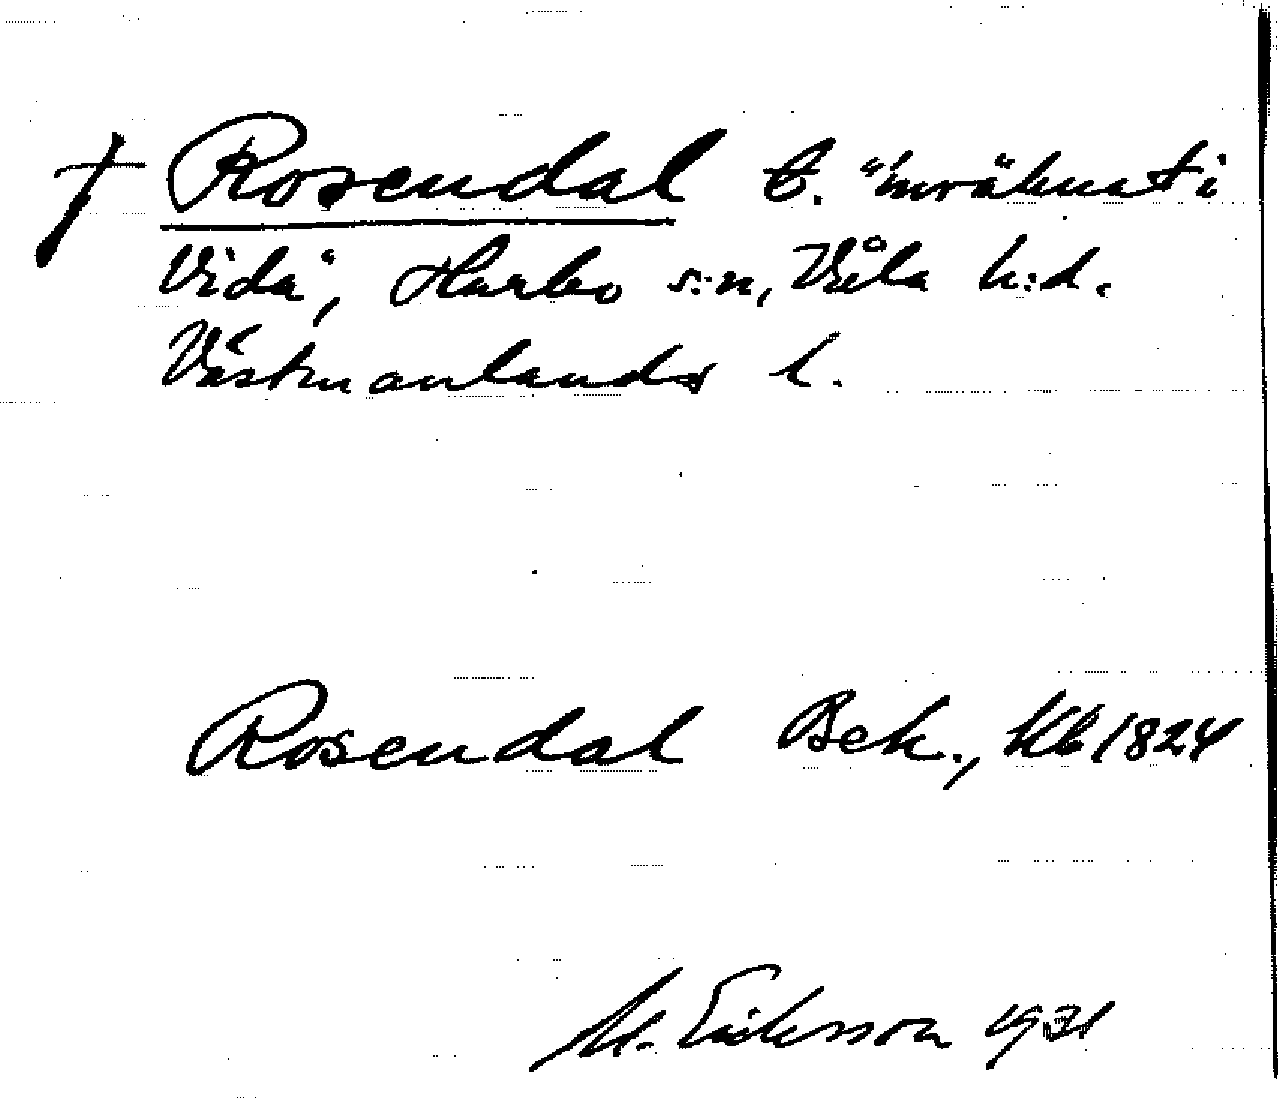 † Rosendal t. "inräknat i
Vida", Harbo s:n, Våla h:d.
Västmanlands l.
Rosendal Bek., Kb 1824
M. Eriksson 1931